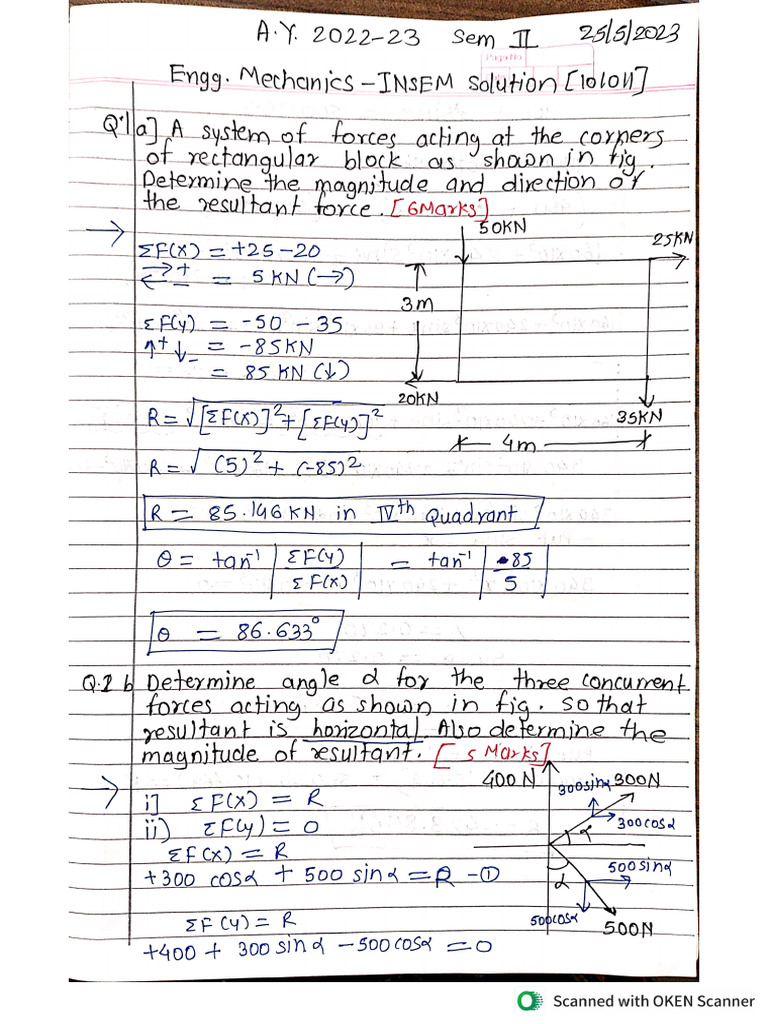 A.Y. 2022-23 Sem II 25/5/2023
Engg. Mechanics - INSEM Solution [101011]
Q.1 a] A system of forces acting at the corners
of rectangular block as shown in fig.
Determine the magnitude and direction of
the resultant force. [6Marks]
→ 50KN
25KN
ΣF(X) = +25-20
→+ ←- = 5 KN (→)
3m
ΣF(y) = -50 - 35
↑+ ↓- = -85KN
= 85 KN (↓)
20KN
35KN
4m
R = √[ΣF(X)]²+[ΣF(y)]²
R = √(5)²+(-85)²
R = 85.146 KN in IVth Quadrant
θ = tan⁻¹ |ΣF(y)/ΣF(X)| = tan⁻¹ |-85/5|
θ = 86.633°
Q.1 b Determine angle α for the three concurrent
forces acting as shown in fig. so that
resultant is horizontal. Also determine the
magnitude of resultant. [5 Marks]
→ 400 N 300sinα 300N
i] ΣF(X) = R
300cosα
α
ii) ΣF(y) = 0
ΣF(X) = R
500sinα
+300 cosα + 500 sinα = R -①
α
ΣF(y) = R
500cosα 500N
+400 + 300 sinα - 500cosα = 0
Scanned with OKEN Scanner